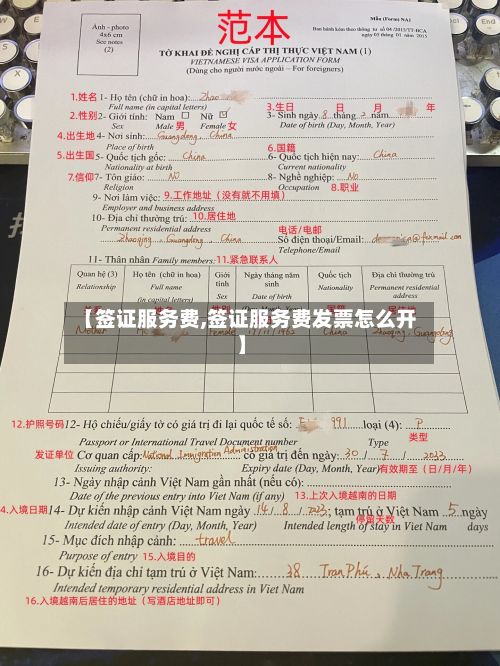 范本
Mẫu (Form) NA1
Ban hành kèm theo thông tư số 04/2015/TT-BCA
ngày 05 tháng 01 năm 2015
Ảnh - photo
4x6 cm
See notes
(2)
TỜ KHAI ĐỀ NGHỊ CẤP THỊ THỰC VIỆT NAM (1)
VIETNAMESE VISA APPLICATION FORM
(Dùng cho người nước ngoài – For foreigners)
1.姓名 1- Họ tên (chữ in hoa): Zhao
Full name (in capital letters)
3.生日 日 月 年
2.性别 2- Giới tính: Nam Nữ 3- Sinh ngày 8 tháng 7 năm
Sex Male 男 Female 女 Date of birth (Day, Month, Year)
4.出生地 4- Nơi sinh: Guangdong, China
Place of birth 6.国籍
5.出生国 5- Quốc tịch gốc: China 6- Quốc tịch hiện nay: China
Nationality at birth Current nationality
7.信仰 7- Tôn giáo: NO 8- Nghề nghiệp: No
Religion Occupation 8.职业
9- Nơi làm việc: 9.工作地址（没有就不用填）
Employer and business address
10- Địa chỉ thường trú: 10.居住地
Permanent residential address 电话/电邮
Zhaoqing, Guangdong, China Số điện thoại/Email: @foxmail.com
Telephone/Email
11- Thân nhân Family members: 11.紧急联系人
Quan hệ (3) Họ tên (chữ in hoa) Giới tính Ngày tháng năm sinh Quốc tịch Địa chỉ thường trú
Relationship Full name (in capital letters) Sex Date of birth Nationality Permanent residential address
【签证服务费,签证服务费发票怎么开
】
Mother China Zhaoqing, Guangdong
12.护照号码 12- Hộ chiếu/giấy tờ có giá trị đi lại quốc tế số: E 991 loại (4): P
Passport or International Travel Document number Type 类型
发证单位 Cơ quan cấp: National Immigration Administration có giá trị đến ngày: 30 / 7 / 2033
Issuing authority: Expiry date (Day, Month, Year) 有效期至（日/月/年）
13- Ngày nhập cảnh Việt Nam gần nhất (nếu có):
Date of the previous entry into Viet Nam (if any) 13.上次入境越南的日期
4.入境日期 14- Dự kiến nhập cảnh Việt Nam ngày 14 / 8 / 2023; tạm trú ở Việt Nam 5 ngày
停留天数
Intended date of entry (Day, Month, Year) Intended length of stay in Viet Nam days
15- Mục đích nhập cảnh: travel
Purpose of entry 15.入境目的
16- Dự kiến địa chỉ tạm trú ở Việt Nam: 38 Tran Phú, Nha Trang
Intended temporary residential address in Viet Nam
16.入境越南后居住的地址（写酒店地址即可）